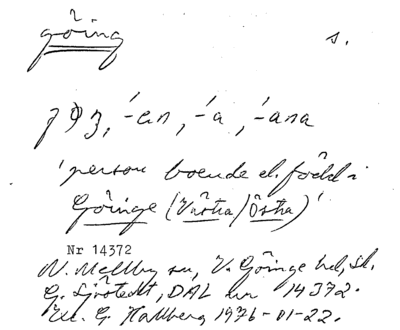 göing s.
-en, -a, -ana
'person boende el. född i
Göinge (Västra/Östra)'
Nr 14372
N. Mellby sn, V. Göinge hd, Sk.
G. Sjöstedt, DAL nr 14372.
G. Hallberg 1976-01-22.